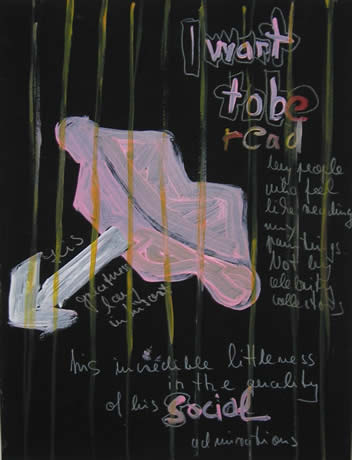 I want
to be
read
by people
who feel
like reading
my
paintings.
Not by
celebrity
collectors
his
in
this incredible littleness
in the quality
of his social
admirations